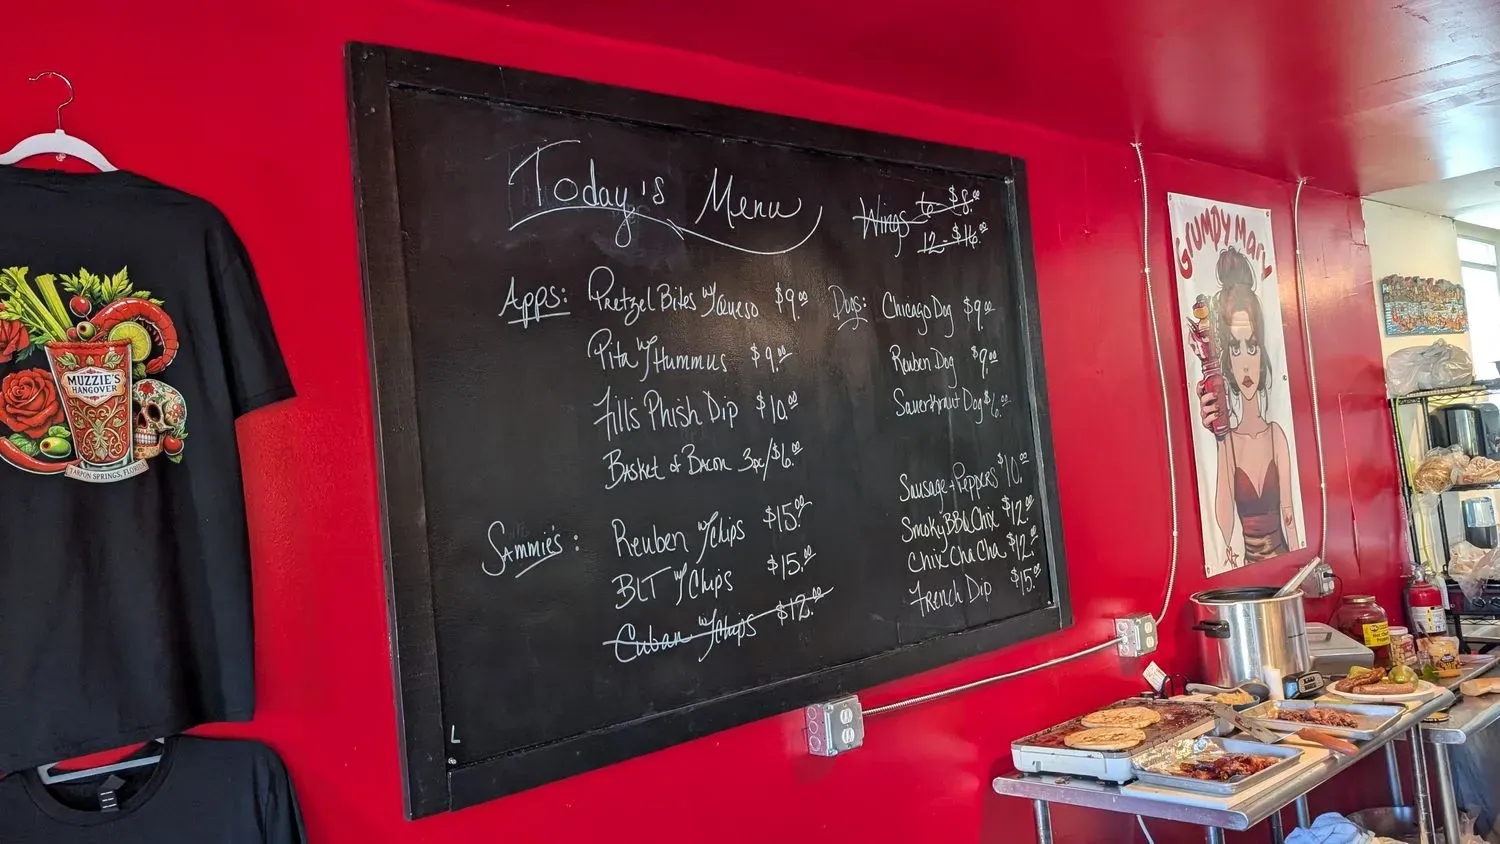 Today's Menu
Wings 6 $8.00
12 - $16.00
Apps: Pretzel Bites w/Queso $9.00
Pita w/Hummus $9.00
Fill's Phish Dip $10.00
Basket of Bacon 3pc/$6.00
Sammie's: Reuben w/Chips $15.00
BLT w/Chips $15.00
Cuban w/Chips $12.00
Dogs: Chicago Dog $9.00
Reuben Dog $9.00
Sauerkraut Dog $6.00
Sausage + Peppers $10.00
Smoky BBQ Chix $12.00
Chix Cha Cha $12.00
French Dip $15.00
L
MUZZIE'S
HANGOVER
TARPON SPRINGS, FLORIDA
GRUMPY MARY